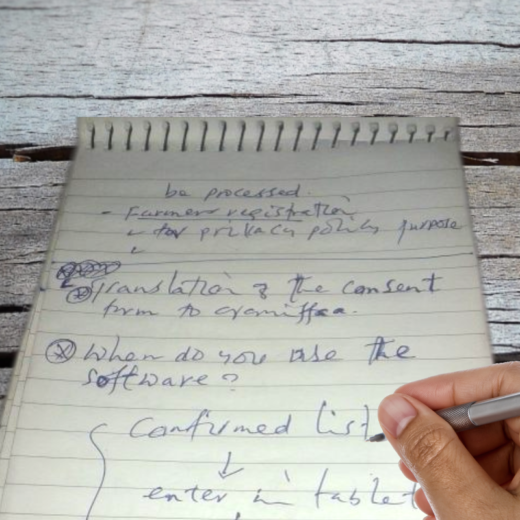 be processed.
- Farmer registration
for privacy policy purpose
Translation of the consent
form to oromiffaa.
When do you use the
software?
Confirmed list
↓
enter in tablet